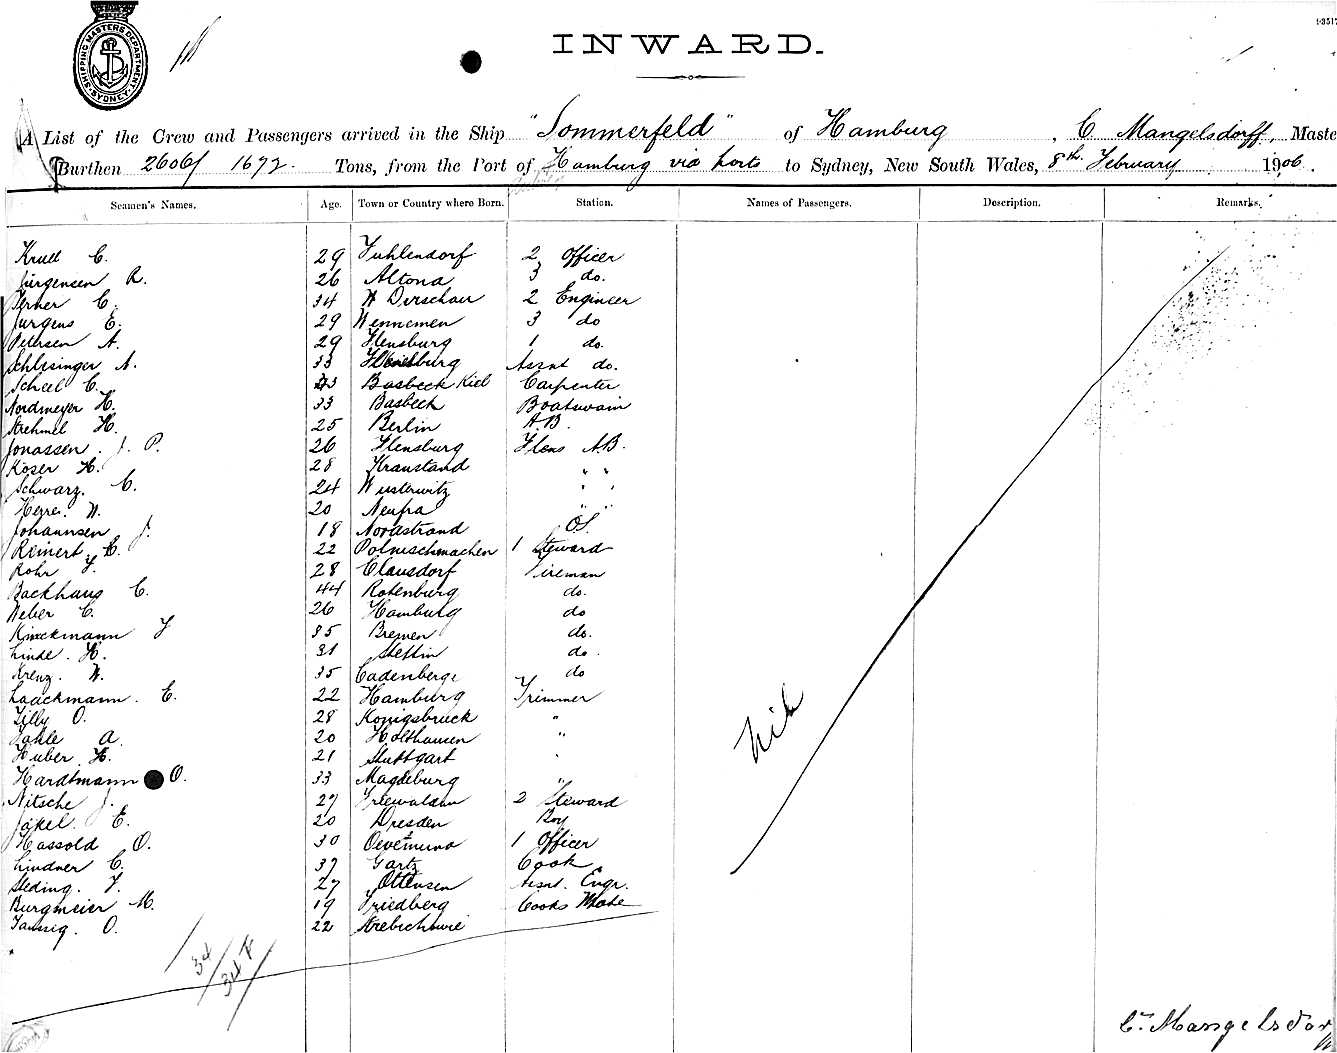 SHIPPING MASTERS DEPARTMENT SYDNEY
INWARD.
A List of the Crew and Passengers arrived in the Ship "Sommerfeld" of Hamburg, C. Mangelsdorff, Maste
Burthen 2606/1672 Tons, from the Port of Hamburg via ports to Sydney, New South Wales, 8th February 1906.
Seamen's Names. Age. Town or Country where Born. Station. Names of Passengers. Description. Remarks.
Krull C. 29 Fuhlendorf 2 Officer
Jürgensen R. 26 Altona 3 do.
C. 34 W Dirschau 2 Engineer
Jurgens E. 29 Wennemen 3 do
Petersen A. 29 Flensburg 1 do.
Schlesinger A. 33 Assnt do.
Scheel C. Basbeck Kiel Carpenter
Nordmeyer H. 33 Basbeck Boatswain
Strehmel H. 25 Berlin A.B.
Jonassen. J. P. 26 Flensburg Flens A.B.
Köser H. 28 Kranstand " "
Schwarz. C. 24 Wusterwitz " "
W. 20 Neufra " "
Johannsen J. 18 Nordstrand O.S.
Reinert C. 22 Polnischmachen 1 Steward
Rohr F. 28 Clausdorf Fireman
Backhaus C. 44 Rotenburg do.
Weber C. 26 Hamburg do
F 35 Bremen do.
Linde. H. 31 Stettin do.
Krenz. W. 35 Cadenberge do
Laackmann. E. 22 Hamburg Trimmer
Tilly O. 28 Königsbruck "
A. 20 Holthausen "
Huber H. 21 Stuttgart "
Hardtmann O. 33 Magdeburg "
Nitsche J. 27 Friewaldau 2 Steward
Jäkel. E. 20 Dresden Boy
Hassold O. 30 1 Officer
Lindner C. 37 Gartz Cook
Steding. F. 27 Ottensen Assnt. Engr.
Burgmeier M. 19 Friedberg Cooks Mate
O. 22
Nil
34
34 F
C. Mangelsdorff